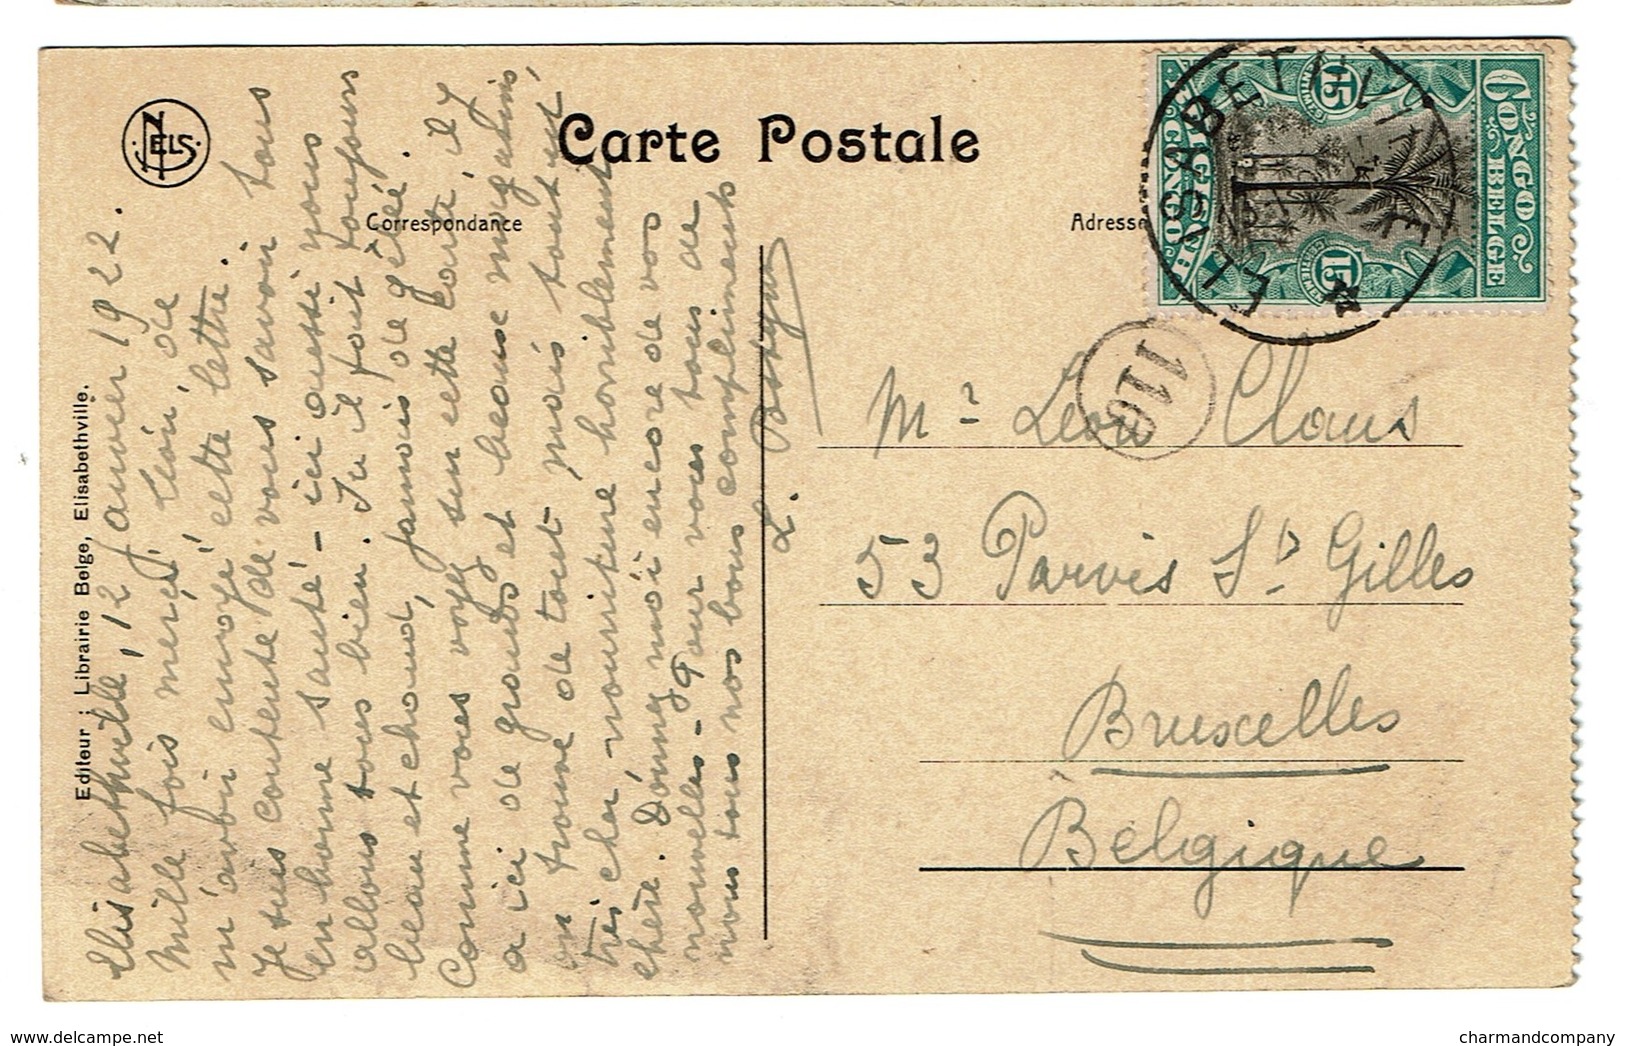 NELS
Carte Postale
Correspondance
Adresse
Editeur : Librairie Belge, Elisabethville.
CONGO BELGE
15
15
ELISABETHVILLE
116
Elisabethville, 12 Janvier 1922.
Mille fois merci, Léon, de
m'avoir envoyé cette lettre.
Je suis contente de vous savoir tous
en bonne santé - ici aussi nous
allons tous bien. Ici il fait toujours
beau et chaud, jamais de gélée.
Comme vous voyez sur cette carte, il y
a ici de grands et beaux magasins,
on trouve de tout mais tout est
très cher, nourriture horriblement
chère. Donnez moi encore de vos
nouvelles - Pour vous tous de
nous tous nos bons compliments
L.
Mr Léon Claus
53 Parvis St Gilles
Bruxelles
Belgique
www.delcampe.net
charmandcompany